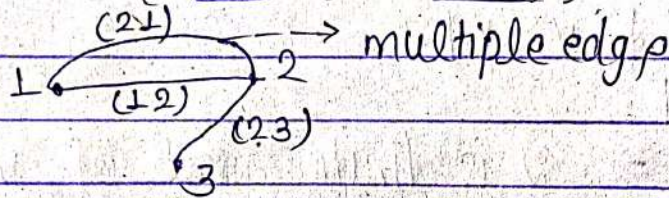 (21)
multiple edge
1
2
(12)
(23)
3